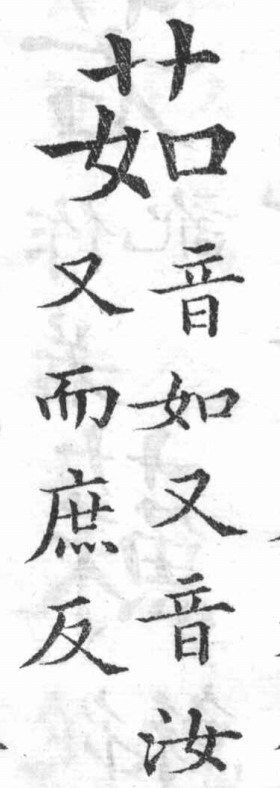 茹
音如又音汝
又而庶反